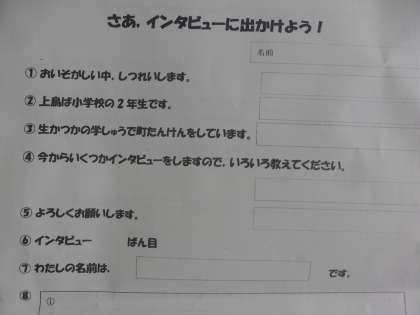 さあ,インタビューに出かけよう!
名前
① おいそがしい中,しつれいします。
② 上鳥ば小学校の2年生です。
③ 生かつかの学しゅうで町たんけんをしています。
④ 今からいくつかインタビューをしますので,いろいろ教えてください。
⑤ よろしくお願いします。
⑥ インタビュー ばん目
⑦ わたしの名前は, です。
⑧ ①